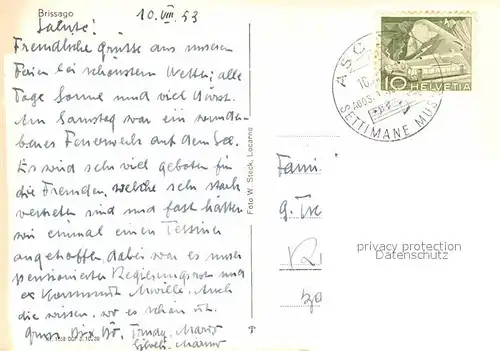 Brissago
10. VIII. 53
Salute!
Freundliche Grüsse aus unseren
Ferien bei schönstem Wetter; alle
Tage Sonne und viel Durst.
Am Samstag war ein wunder-
bares Feuerwerk auf dem See.
Es wird sehr viel geboten für
die Fremden, welche sehr stark
vertreten sind und fast hätten
wir einmal einen Tessiner
angetroffen, dabei war es unser
pensionierter Regierungsrat und
ex Kommandant Auch
die wissen, wo es schön ist.
Gruss
Foto W. Steck, Locarno
ASC
10
AGOS
SETTIMANE MUS
10 HELVETIA
Fami
G.
privacy protection
Datenschutz